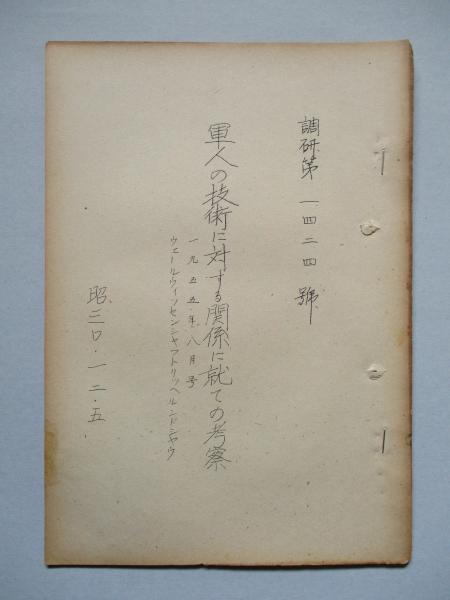 調研第一四二四號
軍人の技術に対する関係に就ての考察
一九五五年八月号
ウェールウィッセンシャフトリッヘルンドシャウ
昭三〇・一二・五